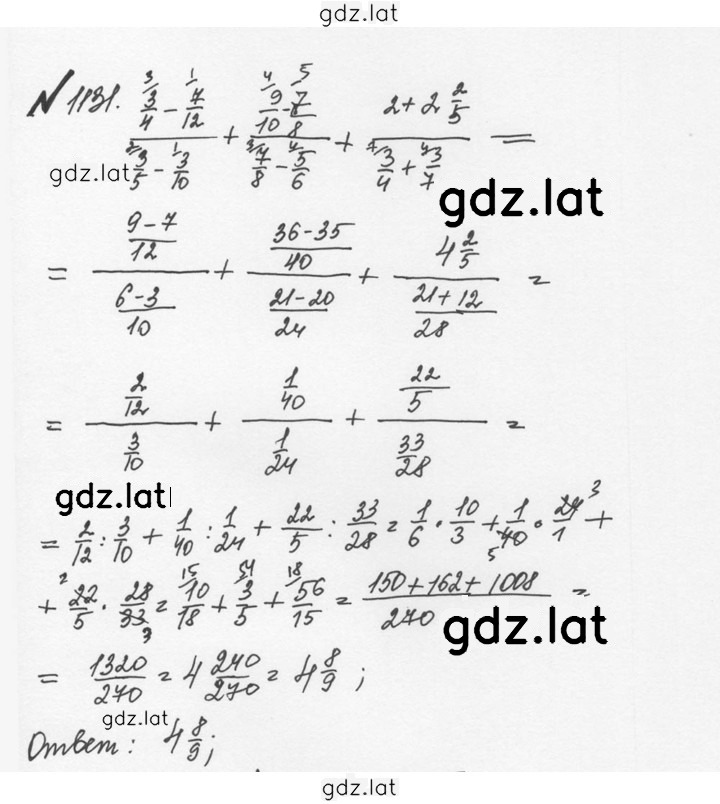 gdz.lat
№1131. (3/4 - 7/12)/(3/5 - 3/10) + (9/10 - 7/8)/(7/8 - 5/6) + (2 + 2 2/5)/(3/4 + 3/7) =
gdz.lat
gdz.lat
= ((9-7)/12)/((6-3)/10) + ((36-35)/40)/((21-20)/24) + (4 2/5)/((21+12)/28) =
= (2/12)/(3/10) + (1/40)/(1/24) + (22/5)/(33/28) =
gdz.lat
= 2/12 : 3/10 + 1/40 : 1/24 + 22/5 : 33/28 = 1/6 · 10/3 + 1/40 · 24/1 +
+ 22/5 · 28/33 = 10/18 + 3/5 + 56/15 = (150+162+1008)/270 =
gdz.lat
= 1320/270 = 4 240/270 = 4 8/9 ;
gdz.lat
Ответ: 4 8/9;
gdz.lat